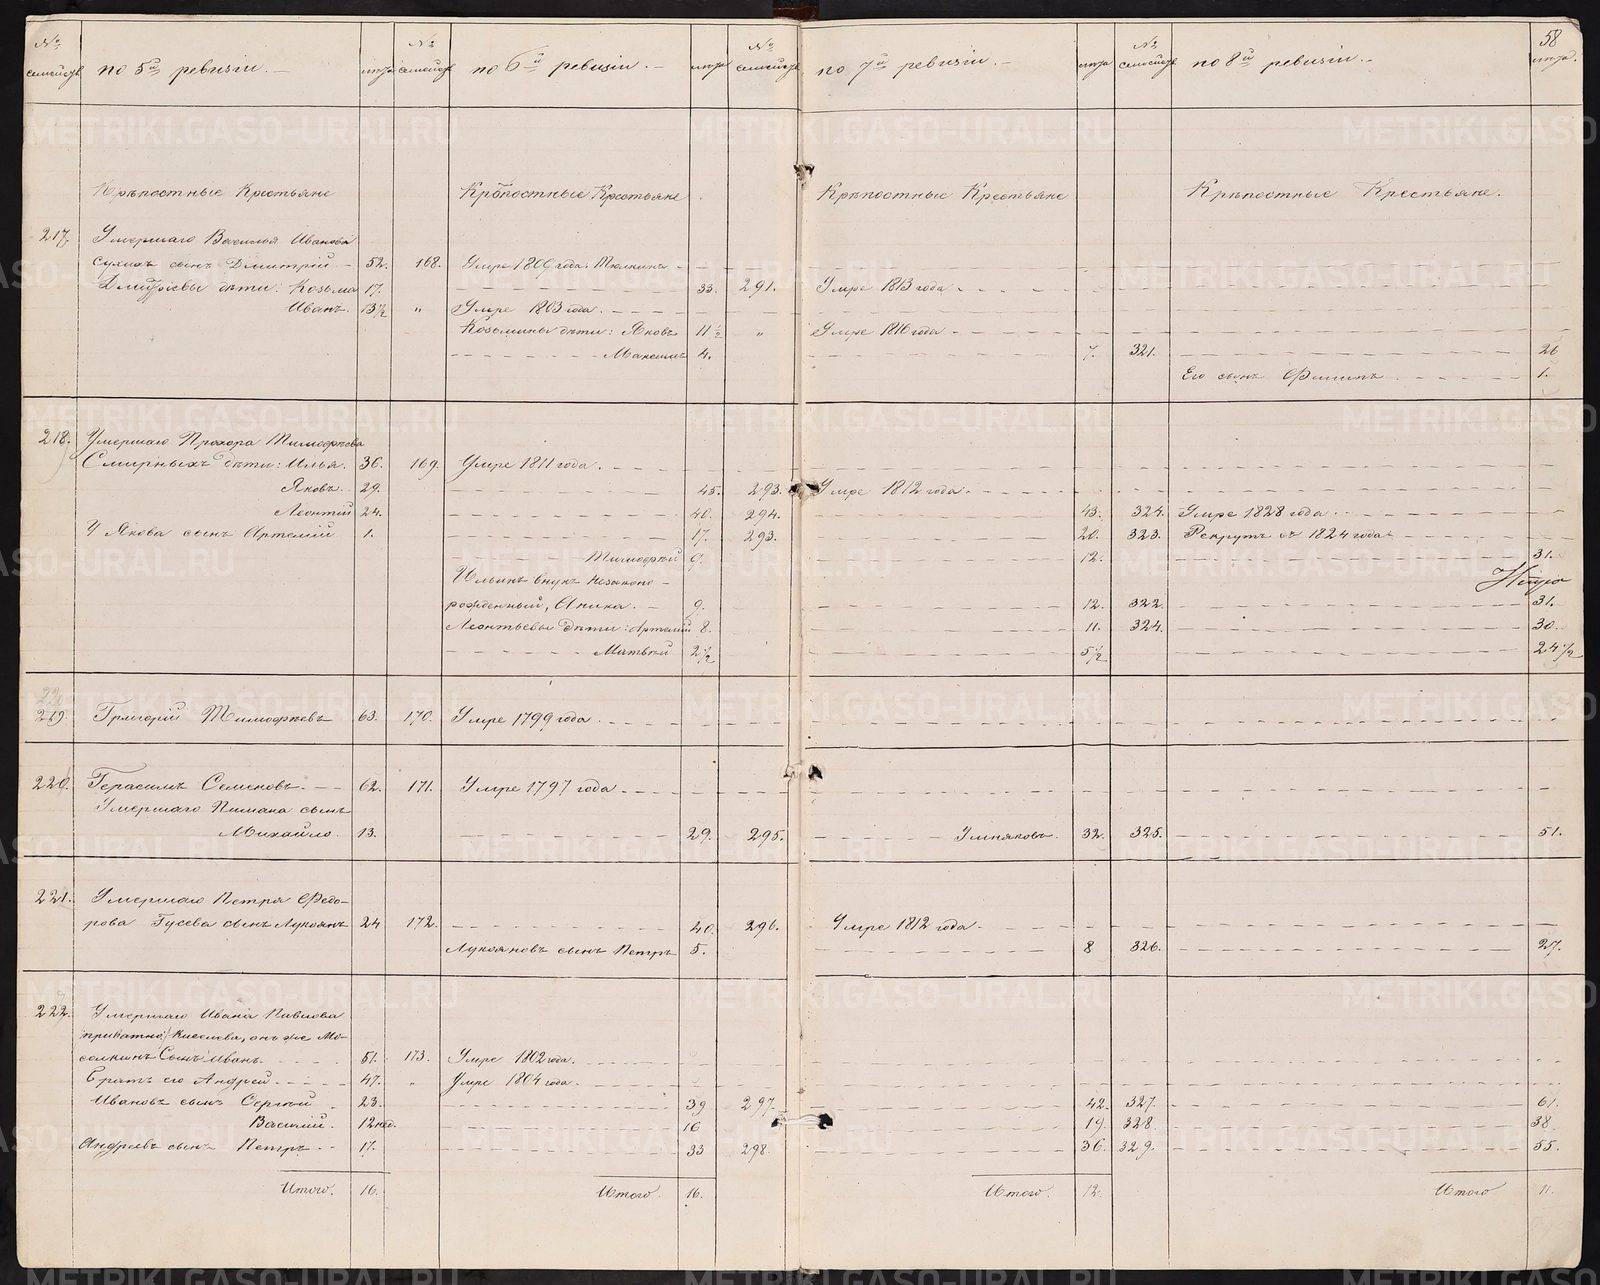 58
№ семействъ по 5й ревизіи.— лѣта № семействъ по 6й ревизіи.— лѣта № семействъ по 7й ревизіи.— лѣта № семействъ по 8й ревизіи.— лѣта.
Крѣпостные Крестьяне Крѣпостные Крестьяне Крѣпостные Крестьяне Крѣпостные Крестьяне.
217. Умершаго Василья Иванова
сынъ Дмитрій 52. 168. Умре 1809 года.
Дмитріевы дѣти: Козьма 17. 33. 291. Умре 1813 года
Иванъ. 13½ " Умре 1803 года.
Козьмины дѣти: Яковъ 11½ " Умре 1816 года
Максимъ 4. 7. 321. 26
Его сынъ Филипъ 1.
218. Умершаго Прохора Тимофѣева
Смирныхъ дѣти: Илья. 36. 169. Умре 1811 года.
Яковъ. 29. 45. 293. Умре 1812 года.
Леонтій 24. 40. 294. 43. 324. Умре 1828 года.
У Якова сынъ Артемій 1. 17. 293. 20. 323. Рекрутъ съ 1824 года
Тимофей 9. 12. 31.
Ильинъ внукъ незаконо-
рожденный, Аника. 9. 12. 322. 31.
Леонтьевы дѣти: Артемій 8. 11. 324. 30.
Матвей 2½ 5½ 24½
219. Григорій Тимофѣевъ 63. 170. Умре 1799 года
220. Герасимъ Семеновъ. 62. 171. Умре 1797 года
Умершаго Пимана сынъ
Михайло. 13. 29. 295. Умняковъ. 32. 325. 51.
221. Умершаго Петра Федо-
рова Гусева сынъ Лукоянъ 24 172. 40. 296. Умре 1812 года.
Лукояновъ сынъ Петръ 5. 8 326. 27.
222. Умершаго Ивана Павлова
Киселева, онъ же Мо-
солкинъ Сынъ Иванъ. 51. 173. Умре 1802 года.
Братъ его Андрей 47. " Умре 1804 года.
Ивановъ сынъ Сергей 23. 39 297. 42. 327. 61.
Василий. 12 нед. 16 19. 328. 38.
Андреевъ сынъ Петръ 17. 33 298. 36. 329. 55.
Итого. 16. Итого. 16. Итого. 12. Итого 11.
METRIKI.GASO-URAL.RU